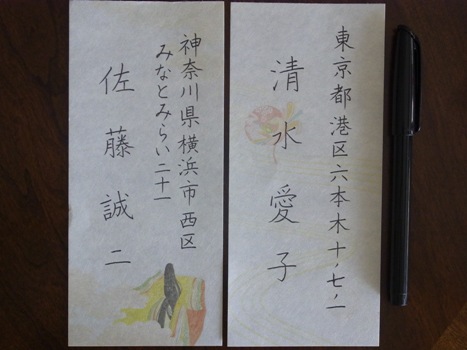 東京都港区六本木十ノ七ノ一
清水愛子
神奈川県横浜市西区
みなとみらい二十一
佐藤誠二